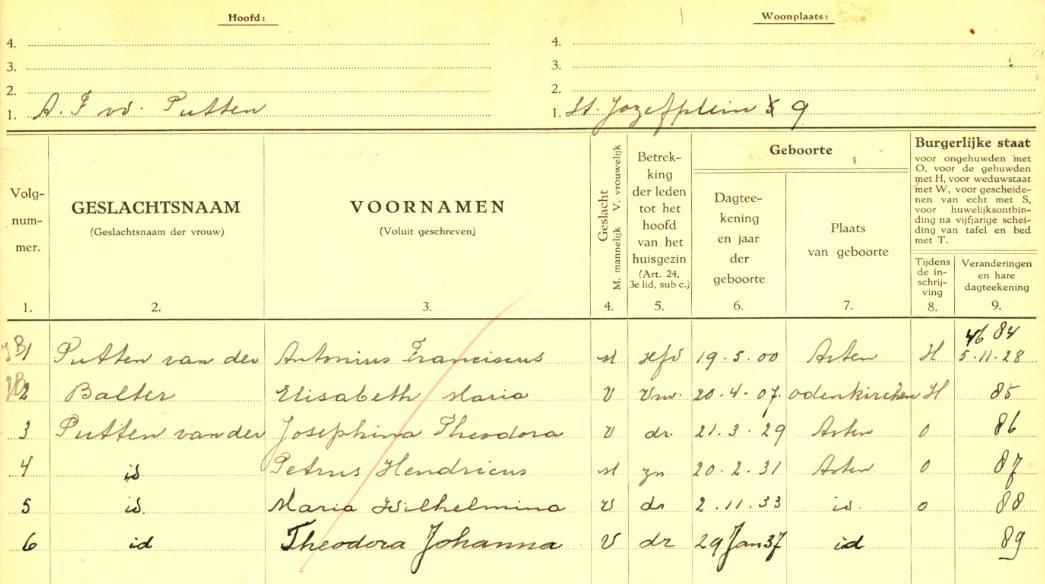 Hoofd:
Woonplaats:
4.
4.
3.
3.
2.
2.
1. A. F vd. Putten
1. St. Jozefplein 9
Volg-
num-
mer.
1.
GESLACHTSNAAM
(Geslachtsnaam der vrouw)
2.
VOORNAMEN
(Voluit geschreven)
3.
Geslacht
M. mannelijk V. vrouwelijk
4.
Betrek-
king
der leden
tot het
hoofd
van het
huisgezin
(Art. 24,
3e lid, sub c.)
5.
Geboorte
Dagtee-
kening
en jaar
der
geboorte
6.
Plaats
van geboorte
7.
Burgerlijke staat
voor ongehuwden met
O, voor de gehuwden
met H, voor weduwstaat
met W, voor gescheide-
nen van echt met S,
voor huwelijksontbin-
ding na vijfjarige schei-
ding van tafel en bed
met T.
Tijdens
de in-
schrij-
ving
8.
Veranderingen
en hare
dagteekening
9.
46 84
1 Putten van der Antonius Franciscus M Hfd 19.5.00 Asten H 5.11.28
2 Balter Elisabeth Maria V Vrw. 20.4.07. Odenkirchen H 85
3 Putten van der Josephina Theodora V dr. 21.3.29 Asten O 86
4 id Petrus Hendricus M zn 20.2.31 Asten O 87
5 id. Maria Wilhelmina V dr 2.11.33 id. O 88
6 id Theodora Johanna V dr 29 Jan 37 id 89